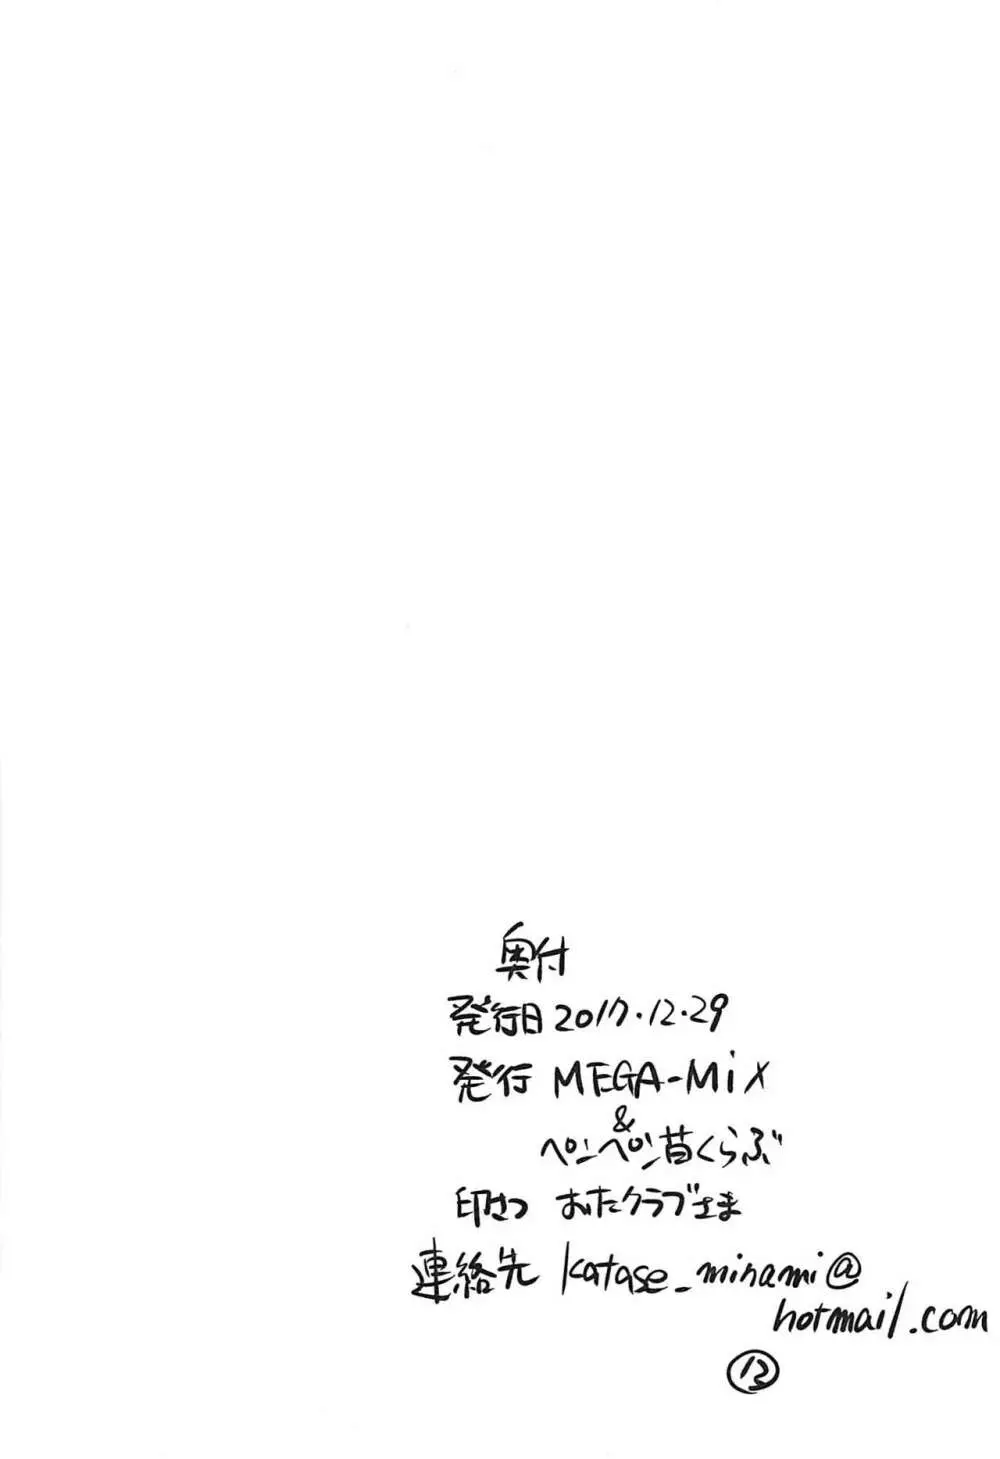 奥付
発行日 2017.12.29
発行 MEGA-MiX
&
ペンペン草くらぶ
印さつ おたクラブさま
連絡先 katase_minami@
hotmail.com
13